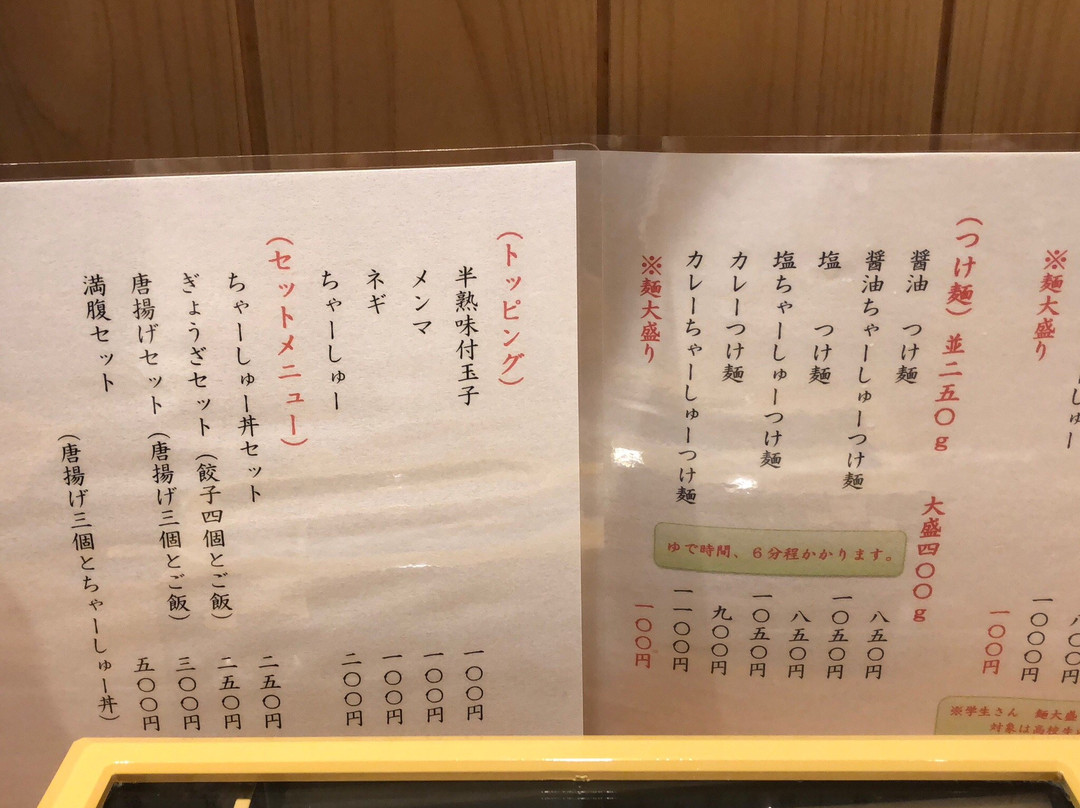 しゅー 一〇〇〇円
※麺大盛り 一〇〇円
(つけ麺) 並二五〇g 大盛四〇〇g
醤油 つけ麺 八五〇円
醤油ちゃーしゅーつけ麺 一〇五〇円
塩 つけ麺 八五〇円
塩ちゃーしゅーつけ麺 一〇五〇円
カレーつけ麺 九〇〇円
カレーちゃーしゅーつけ麺 一一〇〇円
※麺大盛り 一〇〇円
ゆで時間、6分程かかります。
※学生さん 麺大盛
対象は高校生
(トッピング)
半熟味付玉子 一〇〇円
メンマ 一〇〇円
ネギ 一〇〇円
ちゃーしゅー 二〇〇円
(セットメニュー)
ちゃーしゅー丼セット 二五〇円
ぎょうざセット(餃子四個とご飯) 二五〇円
唐揚げセット(唐揚げ三個とご飯) 三〇〇円
満腹セット 五〇〇円
(唐揚げ三個とちゃーしゅー丼)